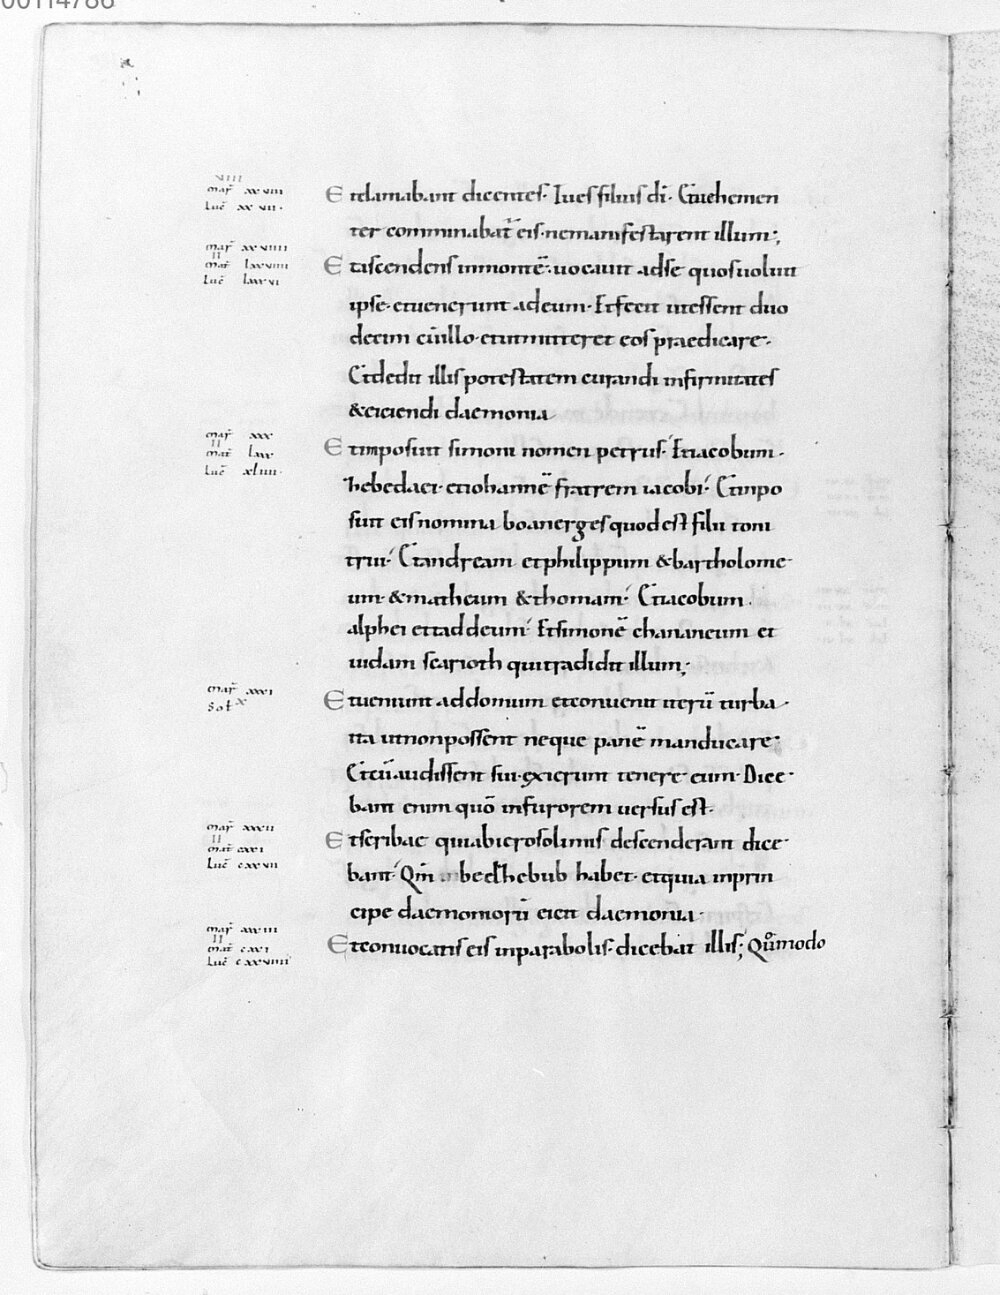 00114786
VIII
mar̄ xxviii
Luc̄ xxvii·
Etclamabant dicentes· Tues filius dī· Etuehemen
ter comminabat̄ eis· nemanifestarent illum;
mar̄ xxviiii
II
mat̄ lxxviiii
Luc̄ lxxvi
Etascendens inmontē· uocauit adse quosuoluit
ipse· etuenerunt adeum· Etfecit utessent duo
decim cūillo· etutmitteret eos praedicare·
Etdedit illis potestatem curandi infirmitates
&eiciendi daemonia
mar̄ xxx
II
mat̄ lxxx
Luc̄ xliiii·
Etimposuit simoni nomen petrus· Etiacobum·
hebedaei· etiohannē fratrem iacobi· Etinpo
suit eis nomina boanerges quod est filii toni
trui· Etandream etphilippum &bartholome
um· &matheum &thomam· Etiacobum·
alphei ettaddeum· Etsimonē chananeum et
iudam scarioth quitradidit illum;
mar̄ xxxi
Sol x
Etueniunt addomum etconuenit iterū turba·
ita utnonpossent neque panē manducare;
Etcū audissent sui· exierunt tenere eum· Dice
bant enim quō infurorem uersus est·
mar̄ xxxii
II
mat̄ cxxi
Luc̄ cxxvii
Etscribae quiabierosolimis descenderant dice
bant· Qm̄ beelhebub habet· etquia inprin
cipe daemoniorū eicit daemonia·
mar̄ xxxiii
II
mat̄ cxxi
Luc̄ cxxviiii
Etconuocatis eis inparabolis· dicebat illis; Quōmodo